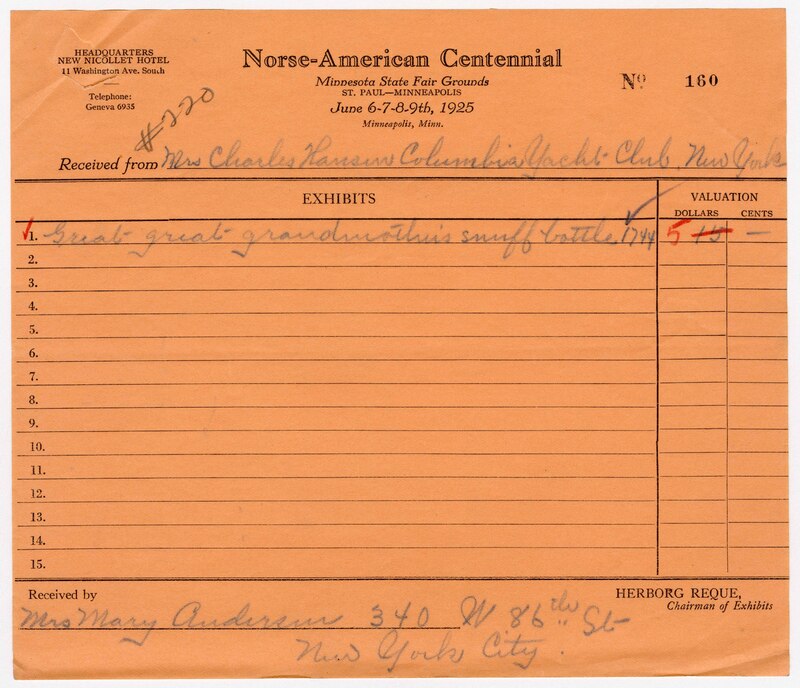 HEADQUARTERS
NEW NICOLLET HOTEL
11 Washington Ave. South
Telephone:
Geneva 6935
#220
Norse-American Centennial
Minnesota State Fair Grounds
ST. PAUL—MINNEAPOLIS
June 6-7-8-9th, 1925
Minneapolis, Minn.
No 160
Received from Mrs Charles Hansen Columbia Yacht Club, New York
EXHIBITS VALUATION
DOLLARS CENTS
1. Great great grandmother's snuff bottle 1744 5 15 —
2.
3.
4.
5.
6.
7.
8.
9.
10.
11.
12.
13.
14.
15.
Received by HERBORG REQUE,
Chairman of Exhibits
Mrs Mary Anderson 340 W 86th St
New York City.